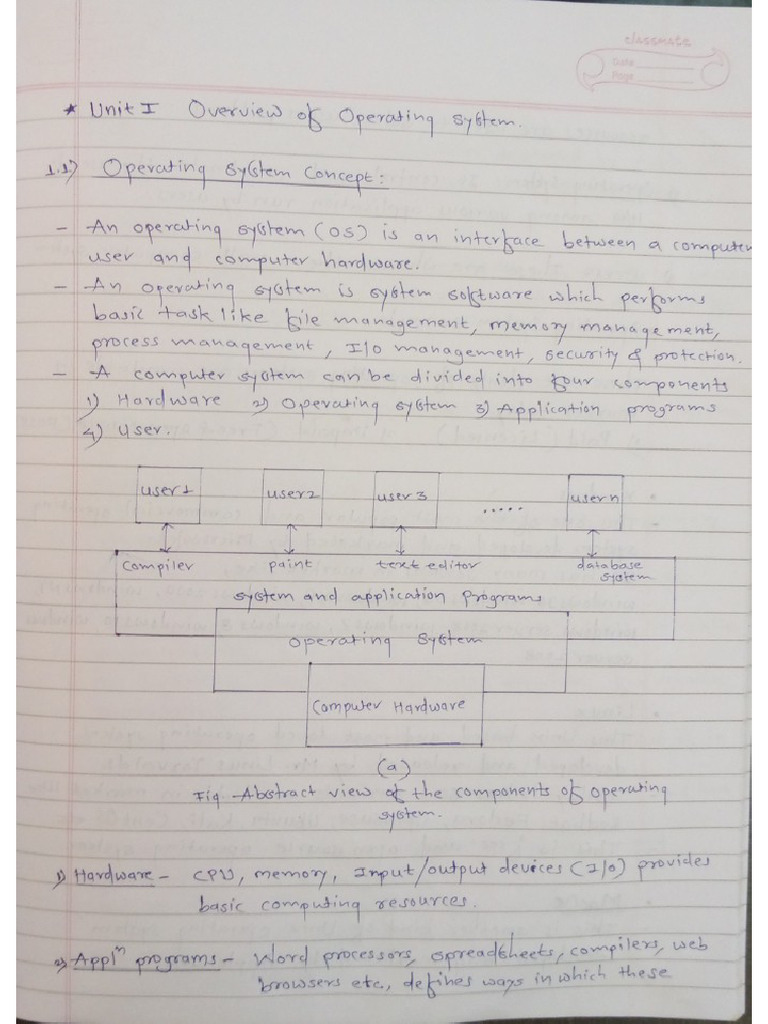 classmate
Date
Page
* Unit I Overview of Operating system.
1.1) Operating system Concept:
- An operating system (OS) is an interface between a computer
user and computer hardware.
- An operating system is system software which performs
basic task like file management, memory management,
process management, I/O management, security & protection.
- A computer system can be divided into four components
1) Hardware 2) Operating system 3) Application programs
4) User.
user1 user2 user3 ..... user n
Compiler paint text editor database
system
system and application programs
Operating system
Computer Hardware
(a)
Fig - Abstract view of the components of operating
system.
1) Hardware - CPU, memory, Input/output devices (I/O) provides
basic computing resources.
2) Applⁿ programs - Word processors, spreadsheets, compilers, web
browsers etc, defines ways in which these